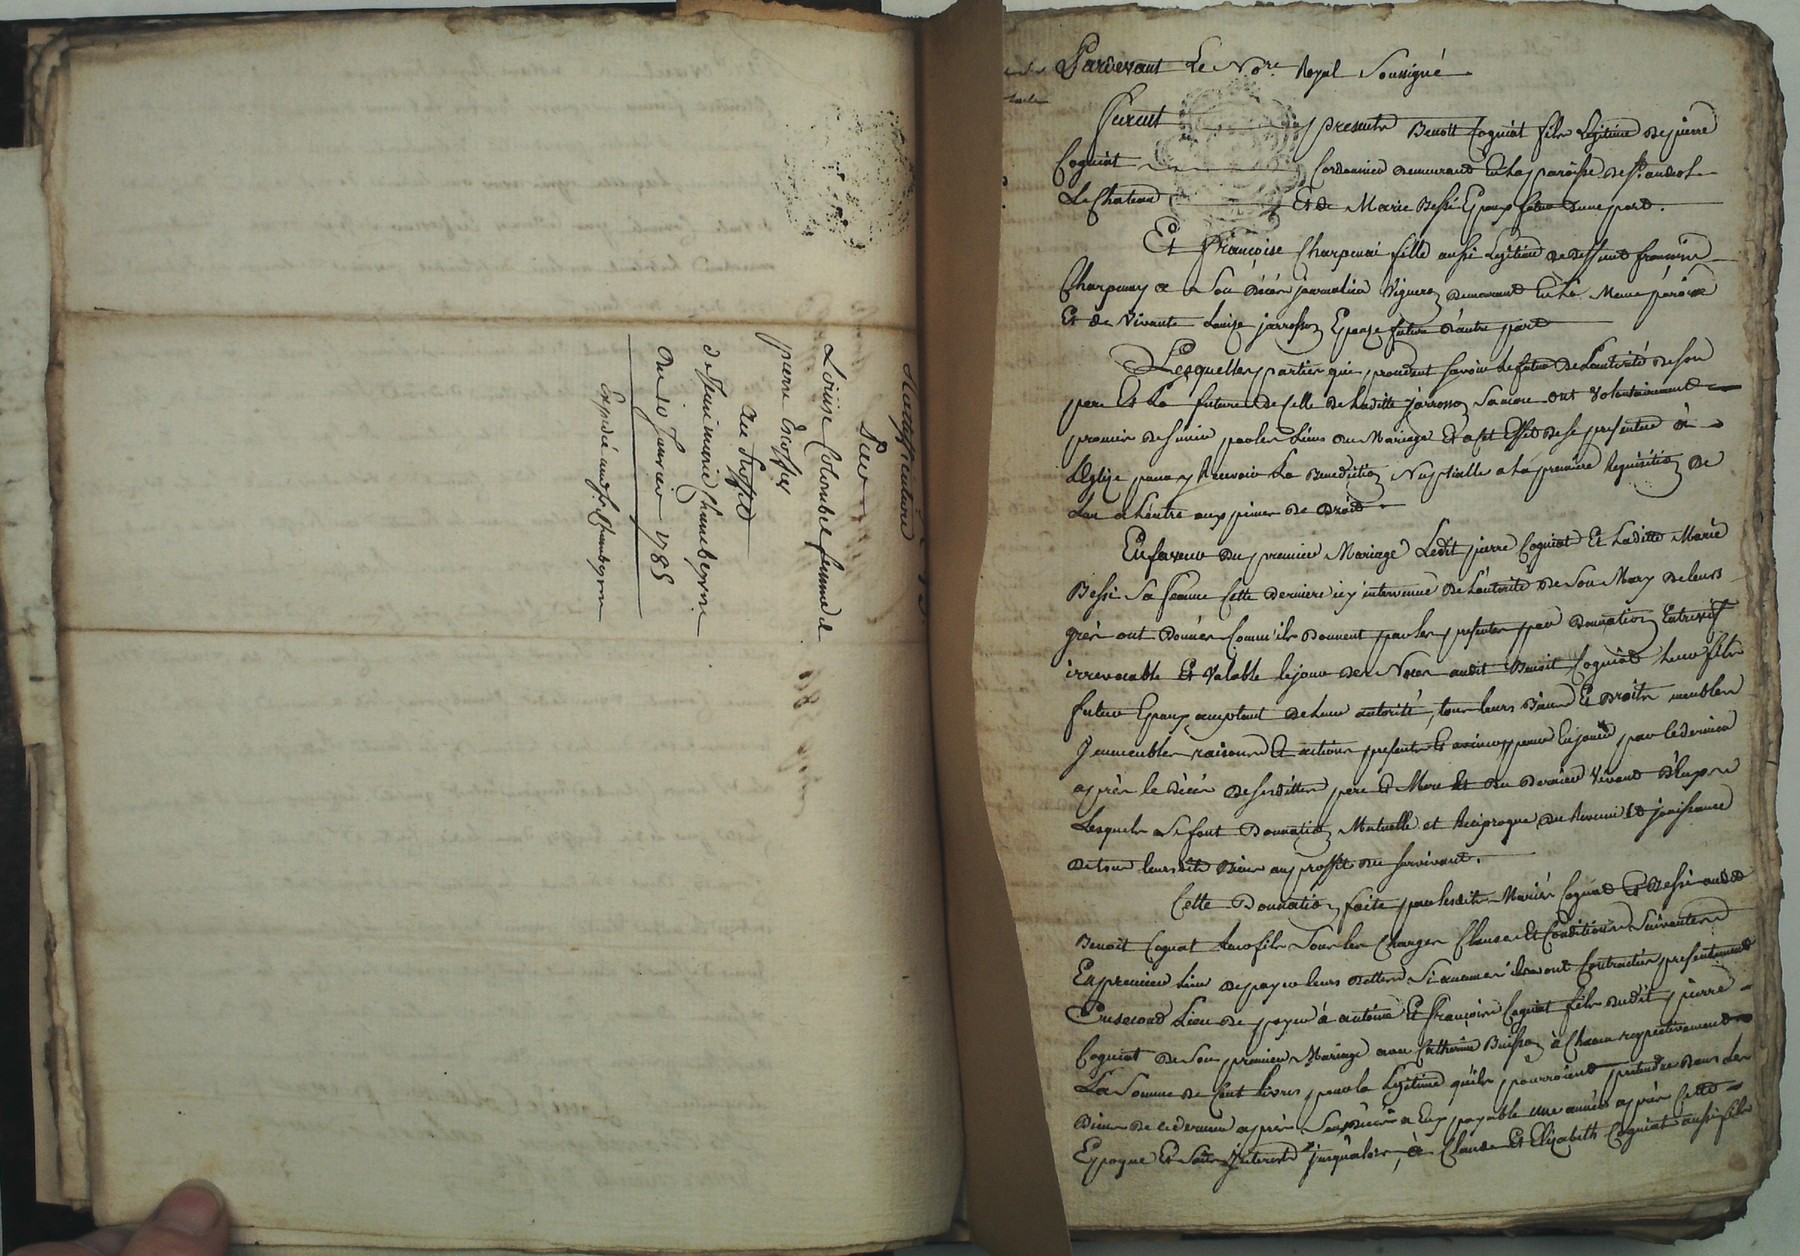 Rattiffication
Par
Louise Colombet femme de
pierre Escoffier
Au proffit
de Jeane marie Chambeyron
Du 10 Janvier 1785
Expédié audit Chambeyron
Pardevant Le No.re Royal Soussigné
Furent presents Benoît Cogniat fils Legitime de pierre
Cogniat Cordonnier demeurant En la paroisse de St. andeol
Le Chateau Et de Marie Bessi Epoux futur d'une part.
Et françoise Charpenai fille aussi Legitime de deffunt françois
Charpenay a Son décès journalier Vigneron demeurant En la Meme paroisse
Et de Vivante Louise jarrosson Epouse future d'autre part
Lesquelles parties qui procedent savoir le futur De L'autorité de son
pere Et La future de celle de Laditte jarrosson Sa mere ont Volontairement
promis de s'unir par les Liens du Mariage Et a cet Effet de se presenter à
L'Eglise pour y Recevoir La Benediction Nuptialle a La premiere Requisition de
L'un a L'autre aux peines de Droit.
En faveur Du premier Mariage Ledit pierre Cogniat Et Laditte Marie
Bessi Sa femme Cette derniere icy intervenue De L'autorité De Son Mary De leurs
grés ont Donnés Comm'ils Donnent par les presentes par Donnation Entrevif
irrevocable Et Valable le jour des Noces audit Benoit Cogniat Leur fils
futur Epoux acceptant De Leur autorité, tous leurs Biens Et Droits meubles
Jmmeubles raisons Et actions presents Et avenir pour En jouir par ce dernier
après le décés desdittes pere Et Mere Et du Dernier Vivant d'Eux
Lesquels Se font Donnation Mutuelle et Reciproque du Revenu Et jouissance
De tous leursdits Biens au proffit du Survivant.
Cette Donnation faite par lesdits Mariés Cogniat Et Bessi audit
Benoit Cogniat Leur fils Sous les Charges Clauses Et Conditions Suivantes
En premier Lieu de payer leurs Dettes Si aucunes ils ont Contractés presentement
En second Lieu de payer à antoine Et françoise Cogniat fils dudit pierre
Cogniat de Son premier Mariage avec Catherine Buisson à Chacun respectivement
La Somme de Cent Livres pour la Legitime qu'ils pourroient pretendre dans les
Biens De ce dernier après Son décès a Eux payable une année après Cette
Epoque Et Sans Jnterest jusqu'alors, à Claude Et Elizabeth Cogniat aussi fils